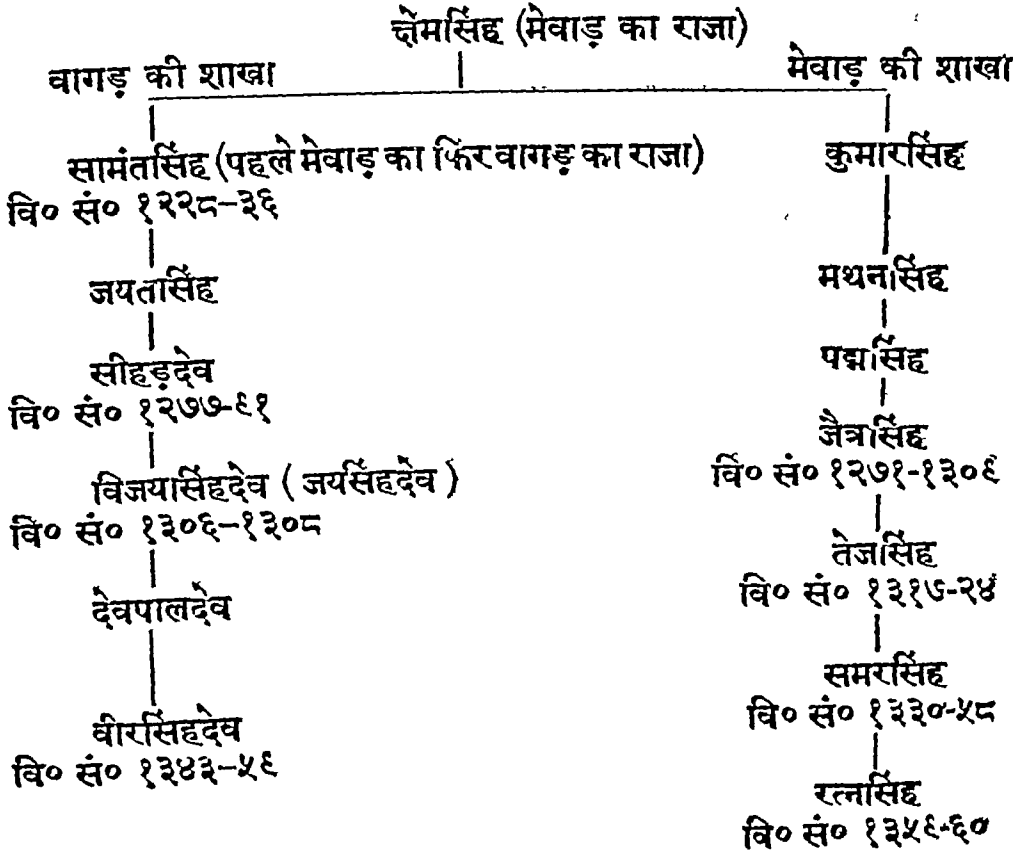 क्षेमसिंह (मेवाड़ का राजा)
वागड़ की शाखा
मेवाड़ की शाखा
सामंतसिंह (पहले मेवाड़ का फिर वागड़ का राजा)
वि० सं० १२२८-३६
जयतसिंह
सीहड़देव
वि० सं० १२७७-९१
विजयसिंहदेव ( जयसिंहदेव )
वि० सं० १३०६-१३०८
देवपालदेव
वीरसिंहदेव
वि० सं० १३४३-५९
कुमारसिंह
मथनसिंह
पद्मसिंह
जैत्रसिंह
वि० सं० १२७१-१३०९
तेजसिंह
वि० सं० १३१७-२४
समरसिंह
वि० सं० १३३०-५८
रत्नसिंह
वि० सं० १३५९-६०